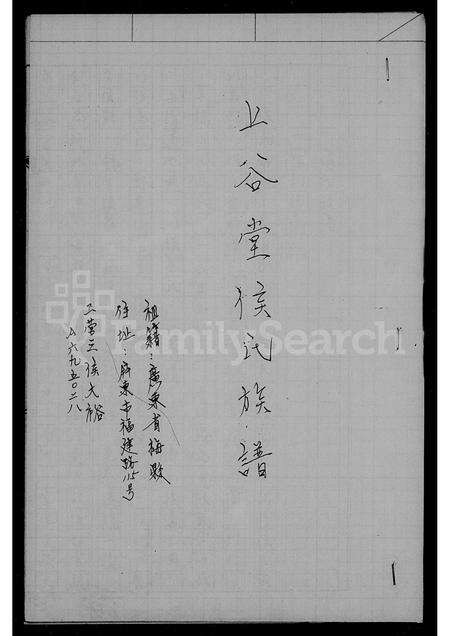 上谷堂侯氏族譜
祖籍：廣東省梅縣
住址：屏東市福建路115号
侯文裕
六九五〇二八
FamilySearch